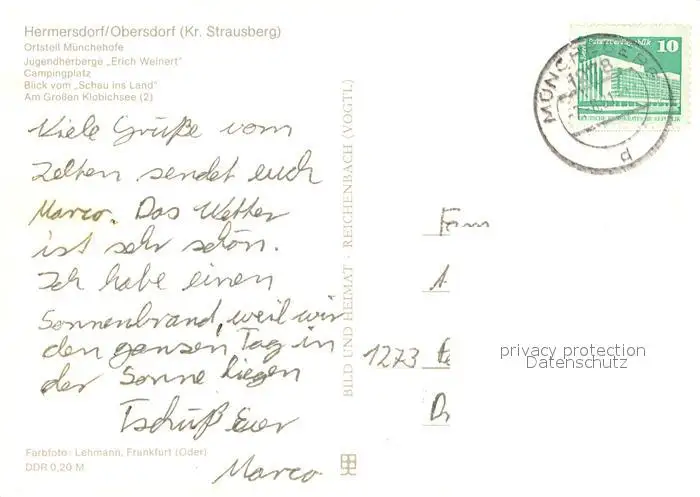 Hermersdorf/Obersdorf (Kr. Strausberg)
Ortsteil Münchehofe
Jugendherberge „Erich Weinert"
Campingplatz
Blick vom „Schau ins Land"
Am Großen Klobichsee (2)
Viele Grüße vom
Zelten sendet euch
Marco. Das Wetter
ist sehr schön.
Ich habe einen
Sonnenbrand, weil wir
den ganzen Tag in
der Sonne liegen
Tschüß Euer
Marco
Farbfoto: Lehmann, Frankfurt (Oder)
DDR 0,20 M
BILD UND HEIMAT · REICHENBACH (VOGTL)
10
MÜNCHEBERG
d
Fam
1273
privacy protection
Datenschutz